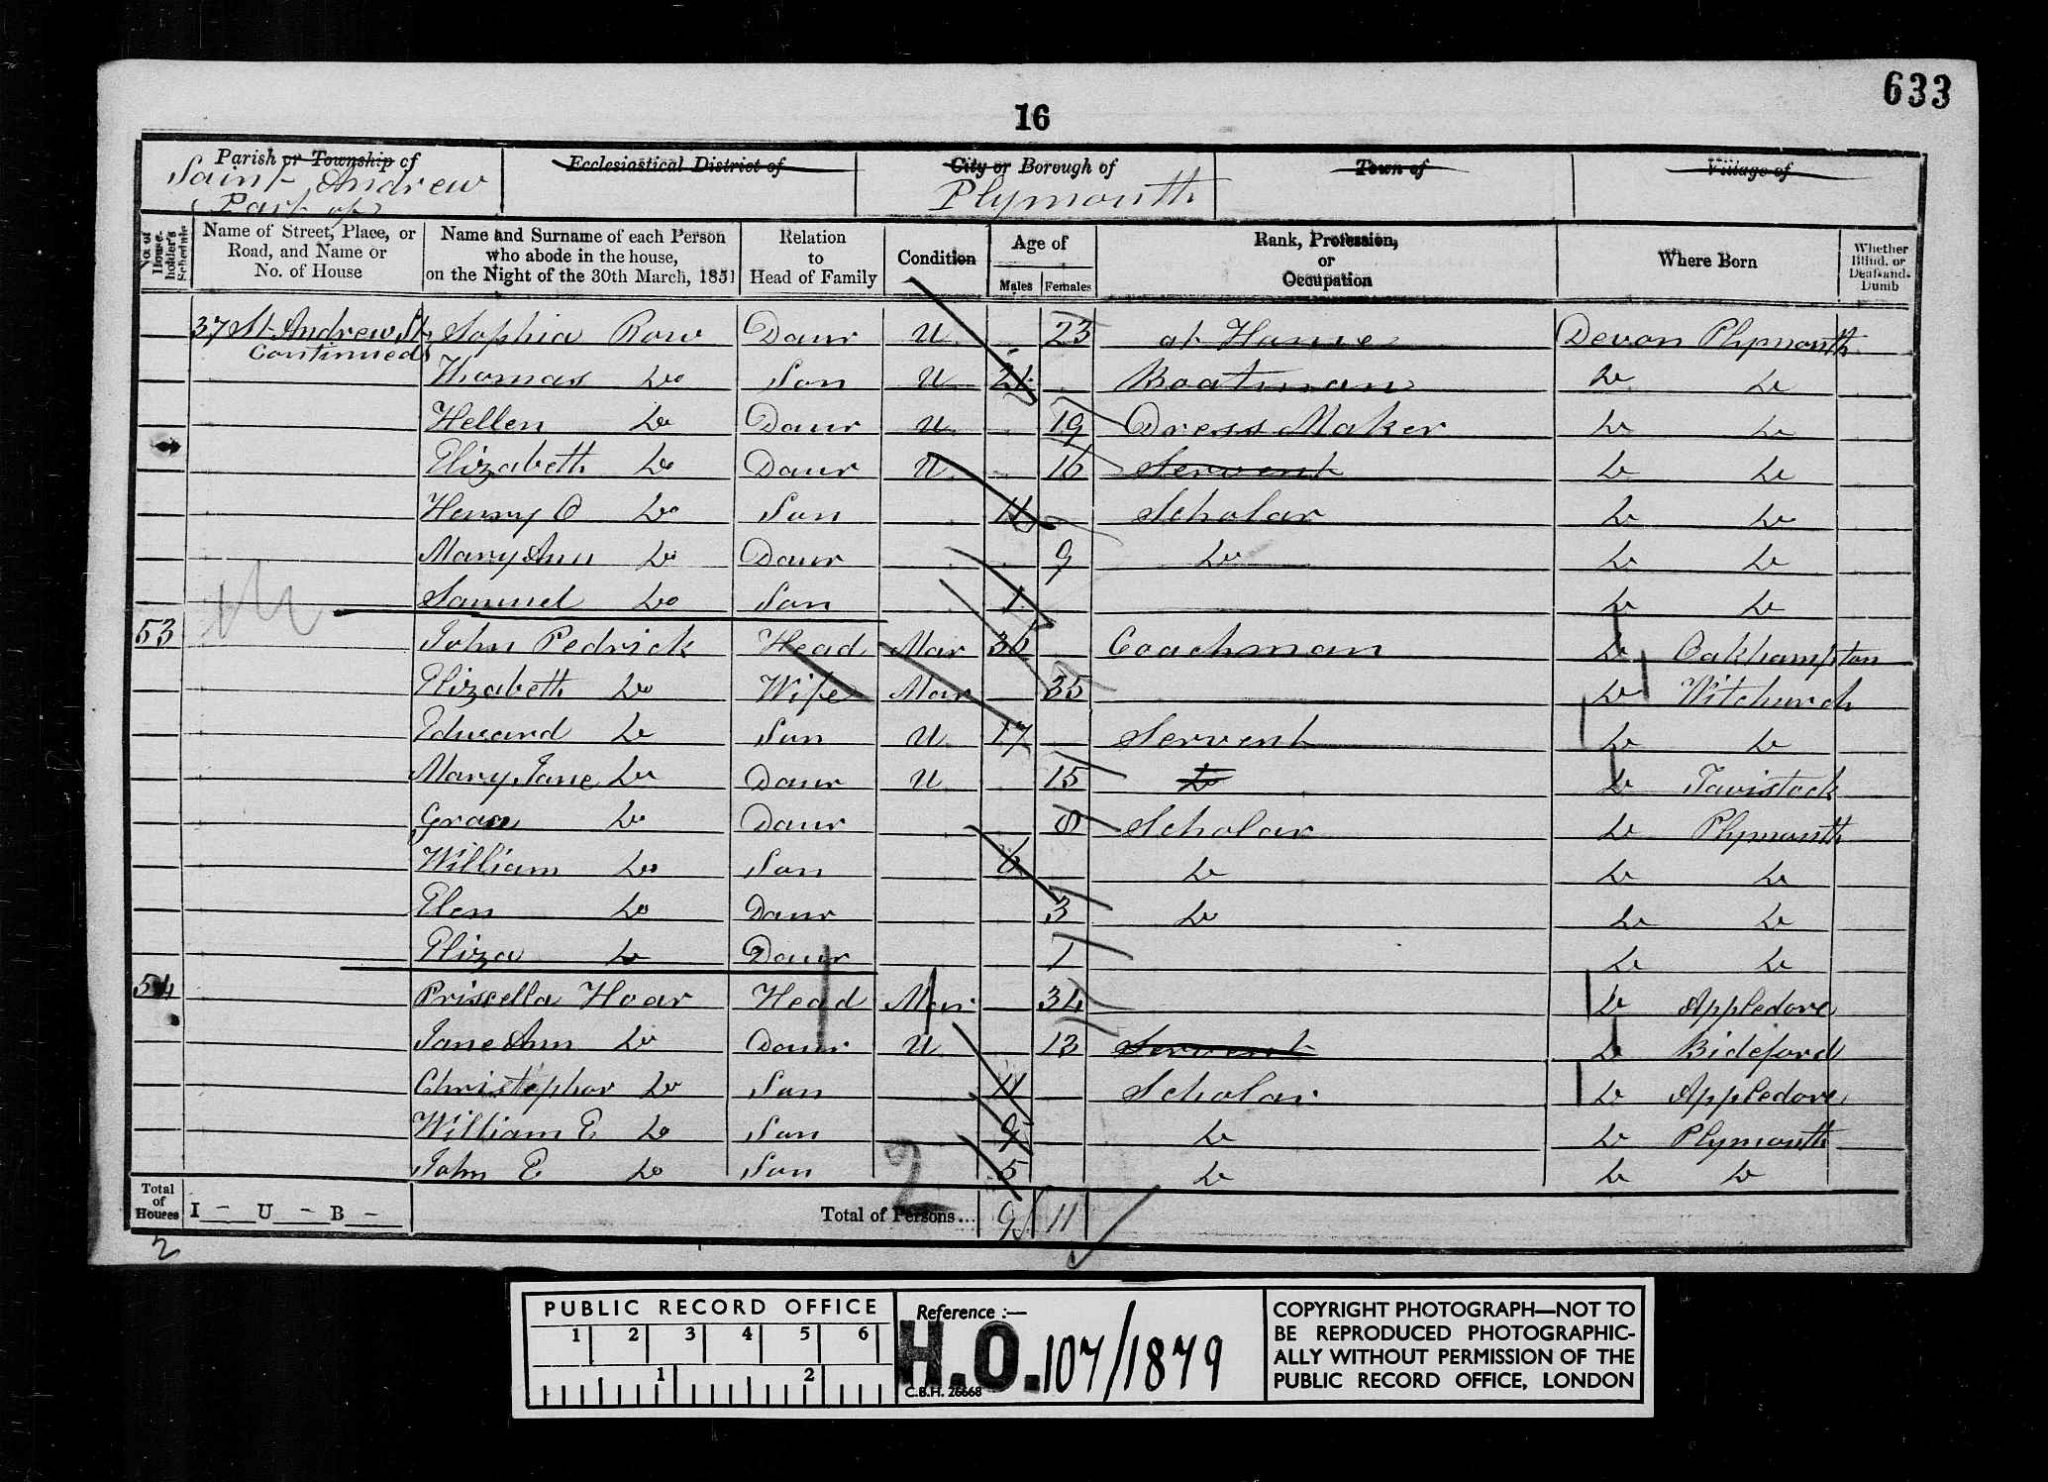 633
16
Parish or Township of
Saint Andrew
Part of
Ecclesiastical District of
City or Borough of
Plymouth
Town of
Village of
No. of House-holder's Schedule
Name of Street, Place, or Road, and Name or No. of House
Name and Surname of each Person who abode in the house, on the Night of the 30th March, 1851
Relation to Head of Family
Condition
Age of
Males
Females
Rank, Profession, or Occupation
Where Born
Whether Blind, or Deaf-and-Dumb
37 St. Andrew St. Sophia Row Daur U 23 at Home Devon Plymouth
Continued
Thomas Do Son U 21 Boatman Do Do
Hellen Do Daur U 19 Dress Maker Do Do
Elizabeth Do Daur U 16 Servent Do Do
Henry O Do Son 11 Scholar Do Do
Mary Ann Do Daur 9 Do Do Do
Samuel Do Son 1 Do Do
53 John Pedrick Head Mar 36 Coachman Do Oakhampton
Elizabeth Do Wife Mar 35 Do Witchurch
Edward Do Son U 17 Servent Do Do
Mary Jane Do Daur U 15 Do Do Tavistock
Grace Do Daur 8 Scholar Do Plymouth
William Do Son 6 Do Do Do
Elen Do Daur 3 Do Do Do
Eliza Do Daur 1 Do Do
54 Priscella Hoar Head Mar 34 Do Appledore
Jane Ann Do Daur U 13 Servent Do Bideford
Christephor Do Son 11 Scholar Do Appledore
William E Do Son 9 Do Do Plymouth
John E Do Son 5 Do Do Do
2
Total of Houses I - U - B -
Total of Persons... 9 11
2
PUBLIC RECORD OFFICE
1 2 3 4 5 6
1 2
Reference :—
H.O. 107/1879
C.B.H. 26668
COPYRIGHT PHOTOGRAPH—NOT TO
BE REPRODUCED PHOTOGRAPHIC-
ALLY WITHOUT PERMISSION OF THE
PUBLIC RECORD OFFICE, LONDON